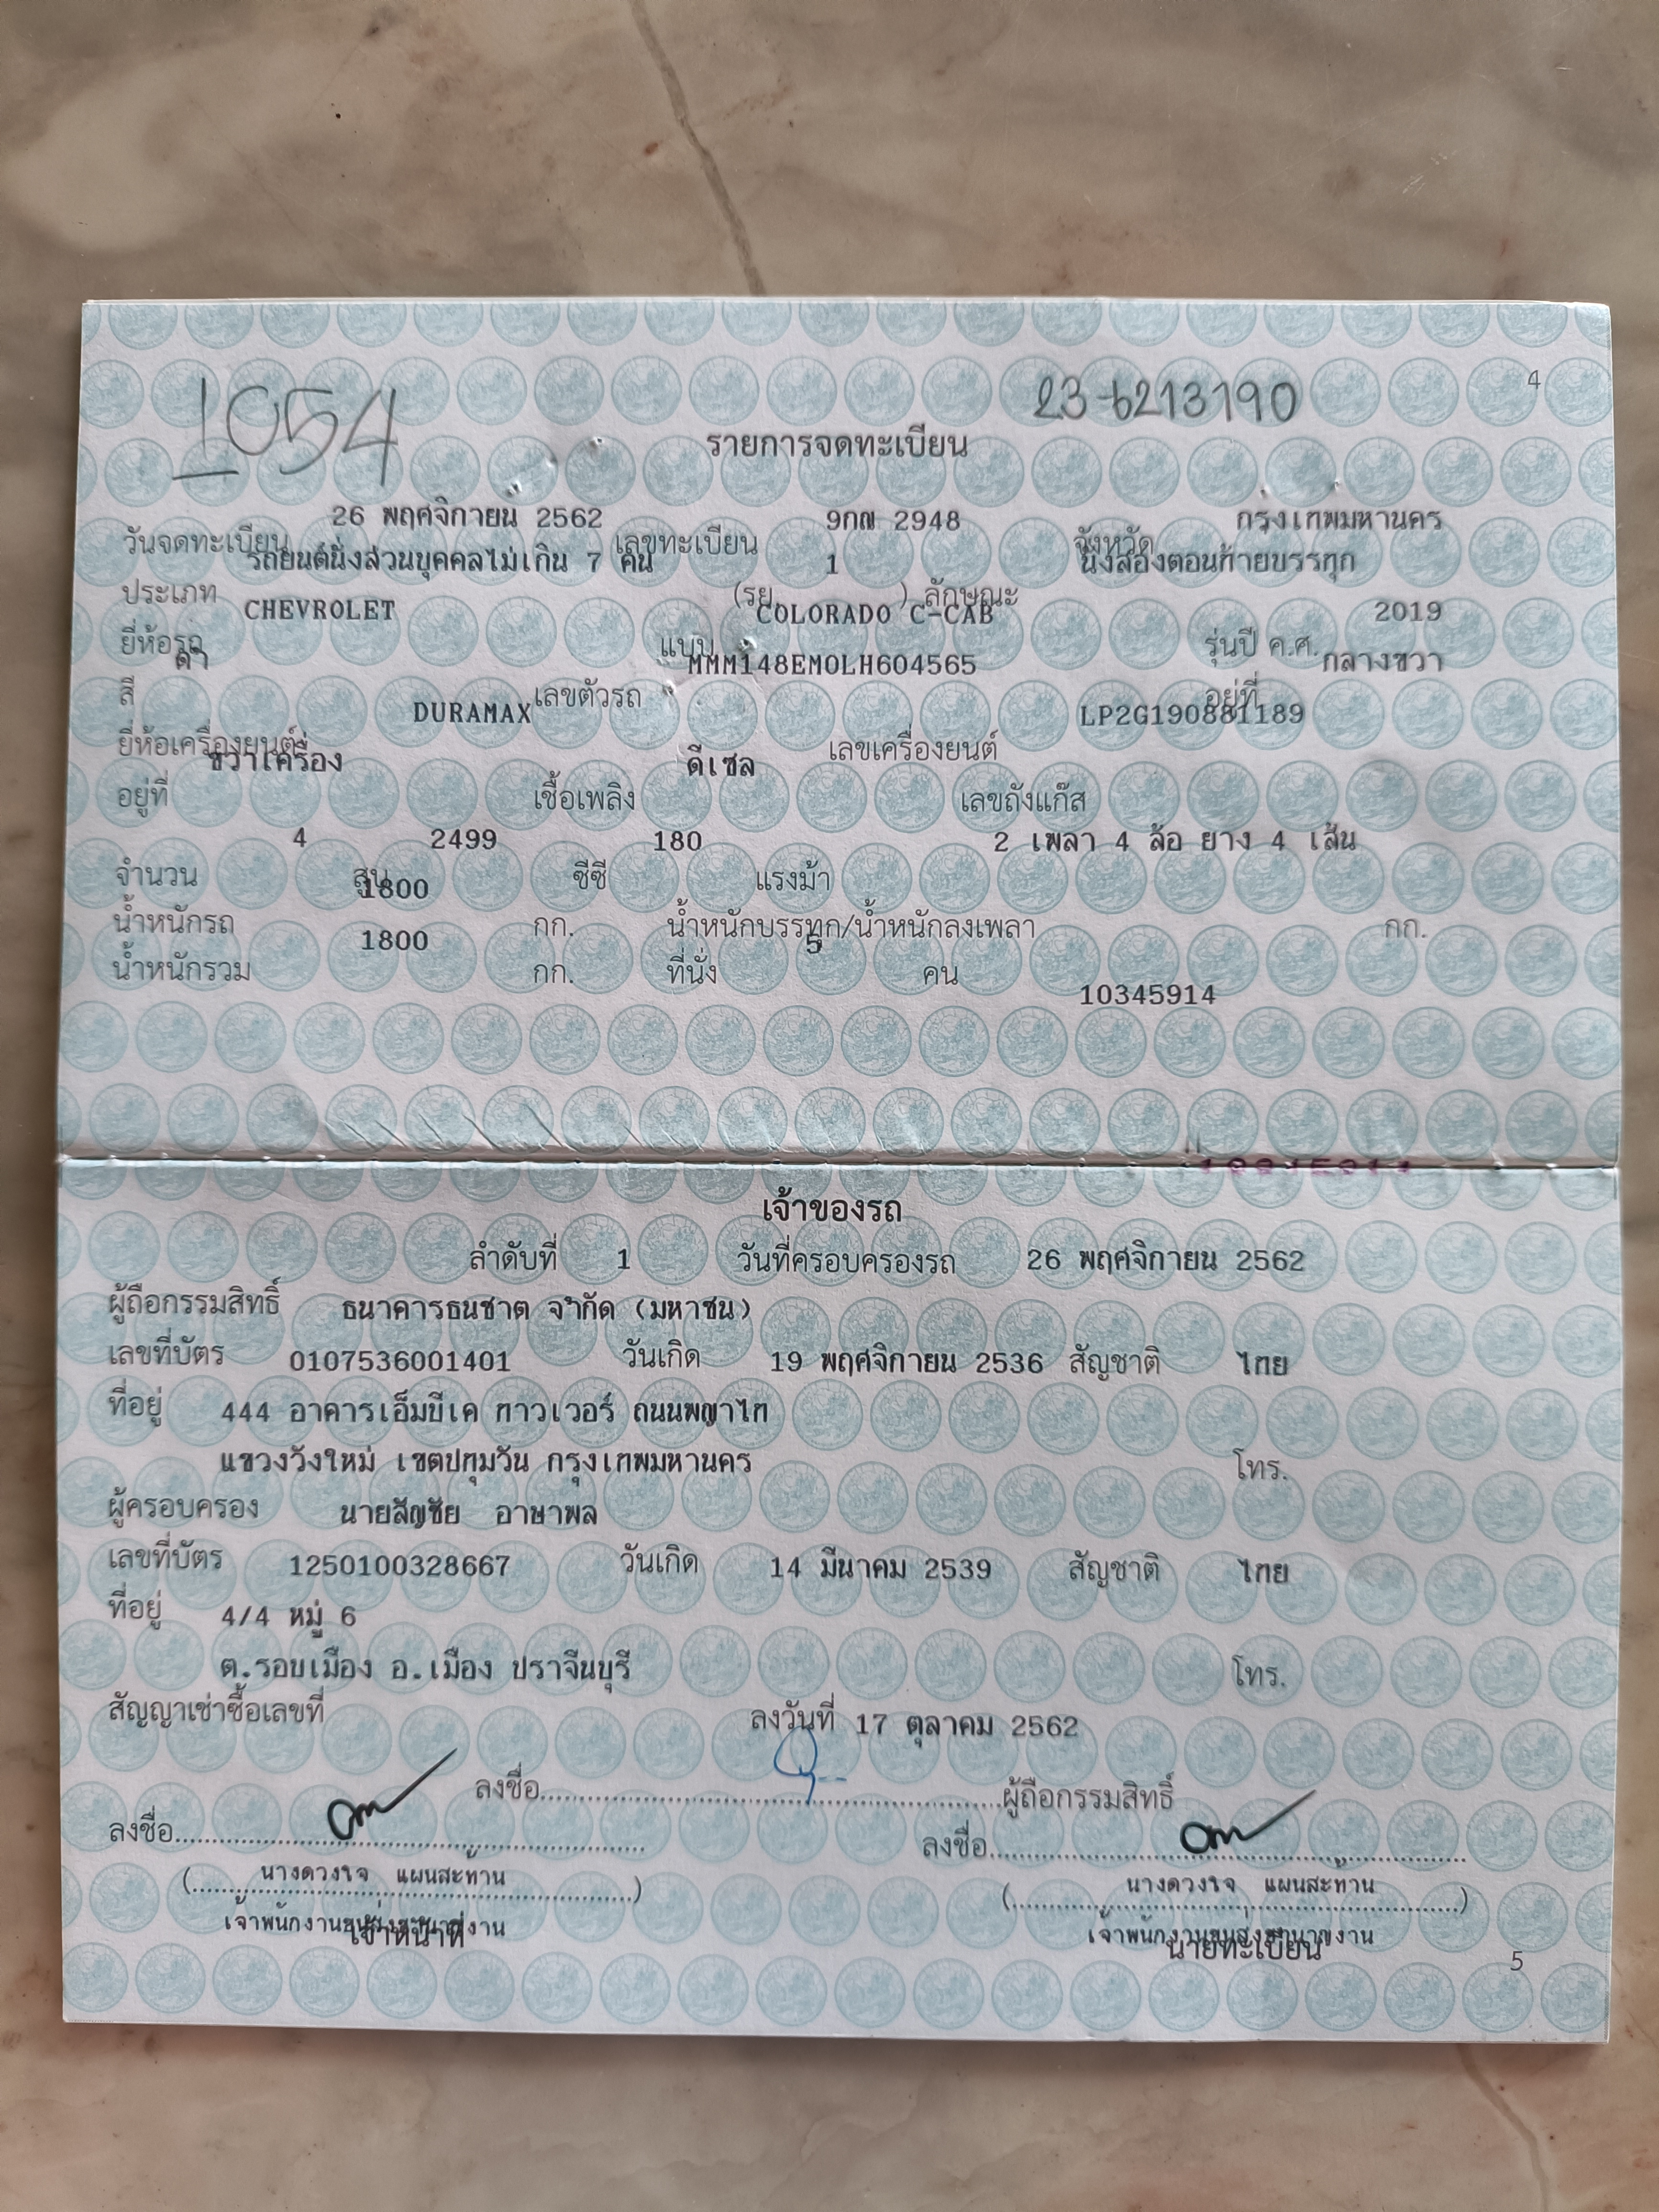 4
1054
23-6213190
รายการจดทะเบียน
วันจดทะเบียน 26 พฤศจิกายน 2562 เลขทะเบียน 9กญ 2948 จังหวัด กรุงเทพมหานคร
ประเภท รถยนต์นั่งส่วนบุคคลไม่เกิน 7 คน (รย. 1 ) ลักษณะ นั่งสองตอนท้ายบรรทุก
ยี่ห้อรถ CHEVROLET แบบ COLORADO C-CAB รุ่นปี ค.ศ. 2019
สี ดำ เลขตัวรถ MMM148EM0LH604565 อยู่ที่ กลางขวา
ยี่ห้อเครื่องยนต์ DURAMAX เลขเครื่องยนต์ LP2G190881189
อยู่ที่ ขวาเครื่อง เชื้อเพลิง ดีเซล เลขถังแก๊ส
จำนวน 4 สูบ 2499 ซีซี 180 แรงม้า 2 เพลา 4 ล้อ ยาง 4 เส้น
น้ำหนักรถ 1800 กก. น้ำหนักบรรทุก/น้ำหนักลงเพลา กก.
น้ำหนักรวม 1800 กก. ที่นั่ง 5 คน
10345914
เจ้าของรถ
ลำดับที่ 1 วันที่ครอบครองรถ 26 พฤศจิกายน 2562
ผู้ถือกรรมสิทธิ์ ธนาคารธนชาต จำกัด (มหาชน)
เลขที่บัตร 0107536001401 วันเกิด 19 พฤศจิกายน 2536 สัญชาติ ไทย
ที่อยู่ 444 อาคารเอ็มบีเค ทาวเวอร์ ถนนพญาไท
แขวงวังใหม่ เขตปทุมวัน กรุงเทพมหานคร โทร.
ผู้ครอบครอง นายสัญชัย อาษาพล
เลขที่บัตร 1250100328667 วันเกิด 14 มีนาคม 2539 สัญชาติ ไทย
ที่อยู่ 4/4 หมู่ 6
ต.รอบเมือง อ.เมือง ปราจีนบุรี โทร.
สัญญาเช่าซื้อเลขที่ ลงวันที่ 17 ตุลาคม 2562
ลงชื่อ ผู้ถือกรรมสิทธิ์
ลงชื่อ ลงชื่อ
(นางดวงใจ แผนสะท้าน) (นางดวงใจ แผนสะท้าน)
เจ้าพนักงานขนส่งชำนาญงาน เจ้าพนักงานขนส่งชำนาญงาน
เจ้าหน้าที่ นายทะเบียน
5